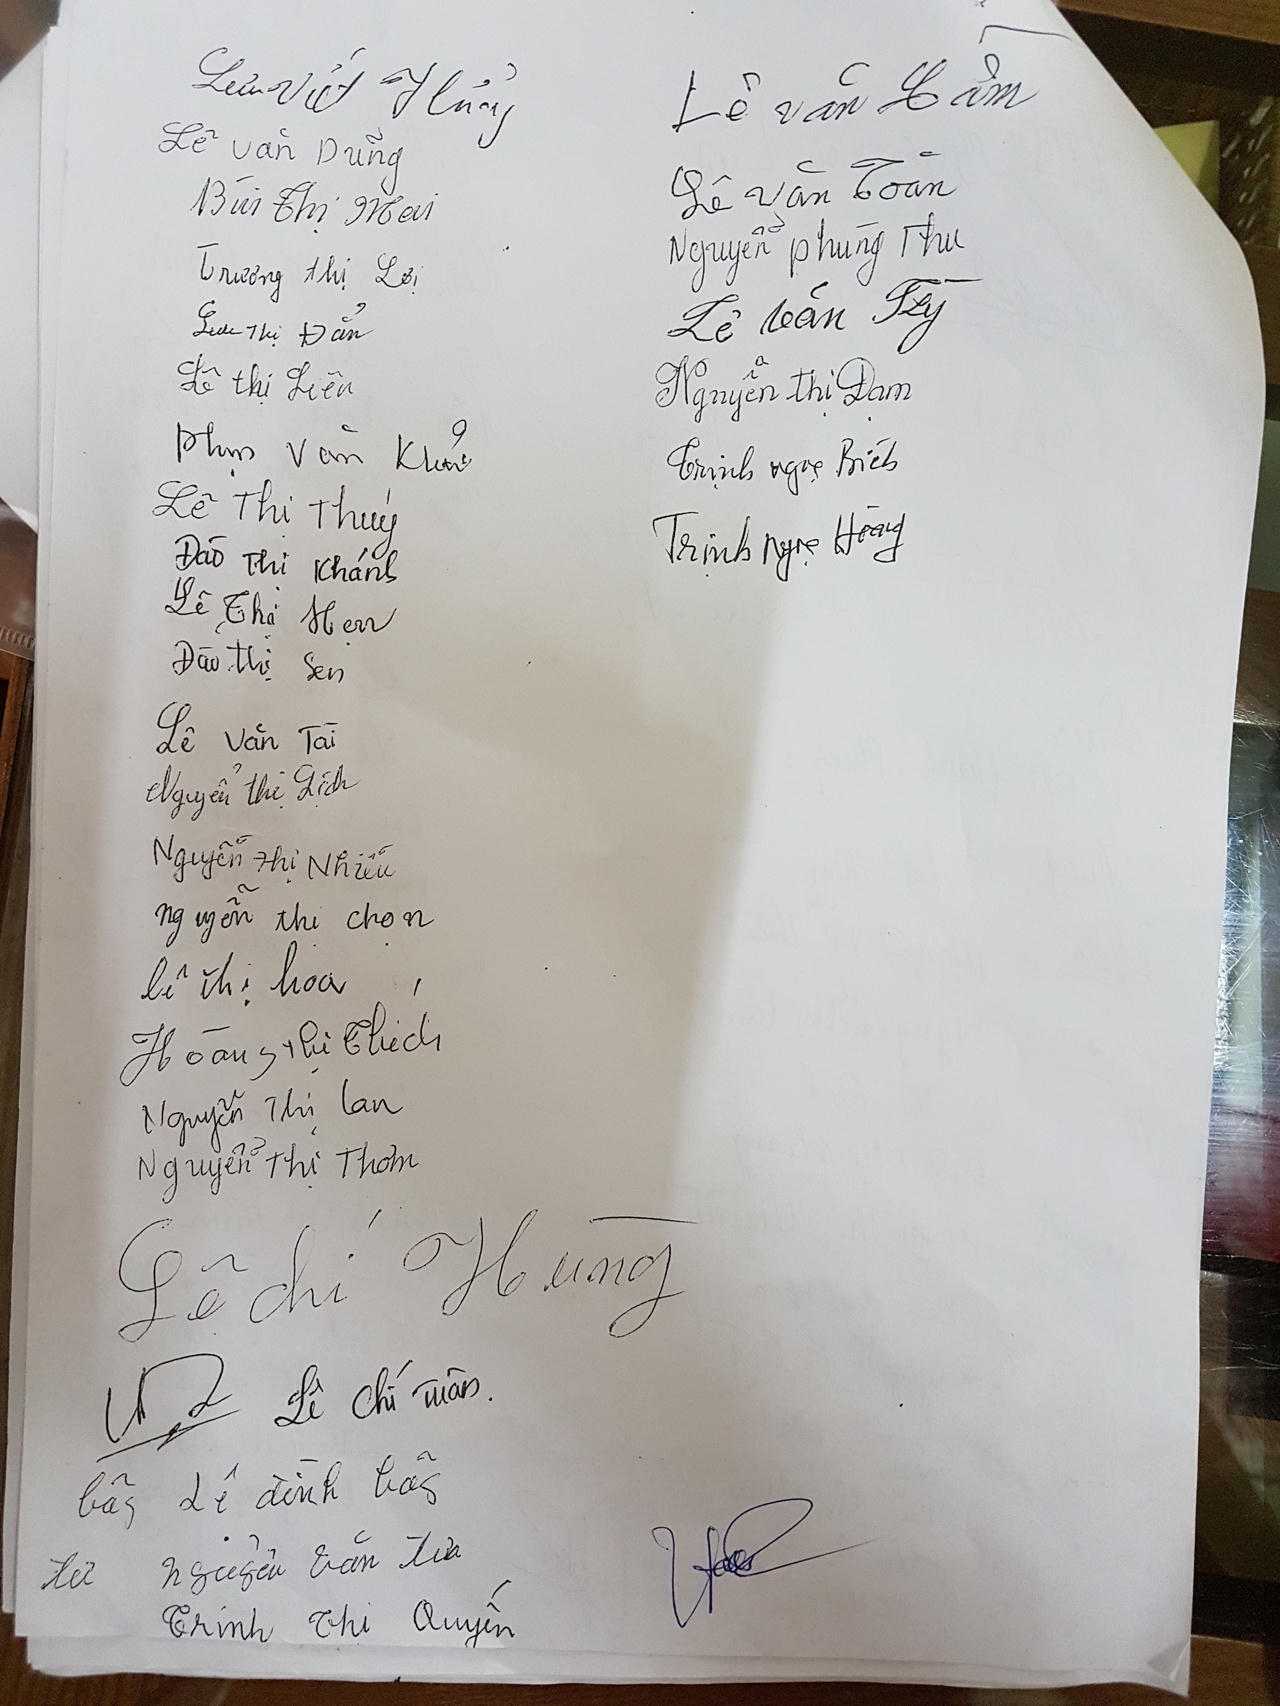 Lưu Viết Thủy
Lê Văn Dũng
Bùi Thị Mai
Trương Thị Lợi
Lưu Thị Đẩn
Lê Thị Liên
Phạm Văn Khả
Lê Thị Thúy
Đào Thị Khánh
Lê Thị Hẹn
Đào Thị Sen
Lê Văn Tài
Nguyễn Thị Lịch
Nguyễn Thị Nhiễu
Nguyễn Thị Chọn
Lê Thị Hoa
Hoàng Thị Thích
Nguyễn Thị Lan
Nguyễn Thị Thơm
Lê Chí Hùng
Lê Chí Tuân.
Lê Đình
Văn
Trịnh Thị Quyến
Lê Văn
Lê Văn Toàn
Nguyễn Phùng Thu
Lê Văn
Nguyễn Thị Đạm
Trịnh Ngọc Bích
Trịnh Ngọc Hoàng